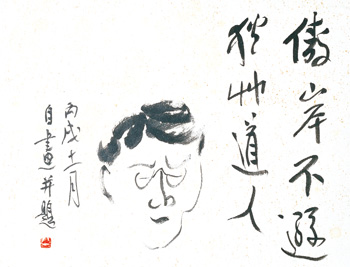 傲岸不遜
狄艸道人
丙戌十一月
自畫并題